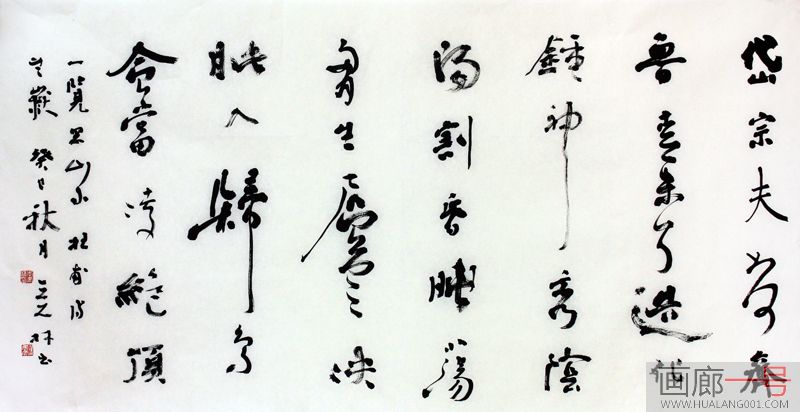 岱宗夫如何齊
魯青未了造化
鍾神秀陰
陽割昏曉盪
胸生層雲決
眥入歸鳥
會當凌絕頂
一覽眾山小 杜甫詩
望嶽 癸巳秋月 林書
画廊一号
WWW.HUALANG001.COM